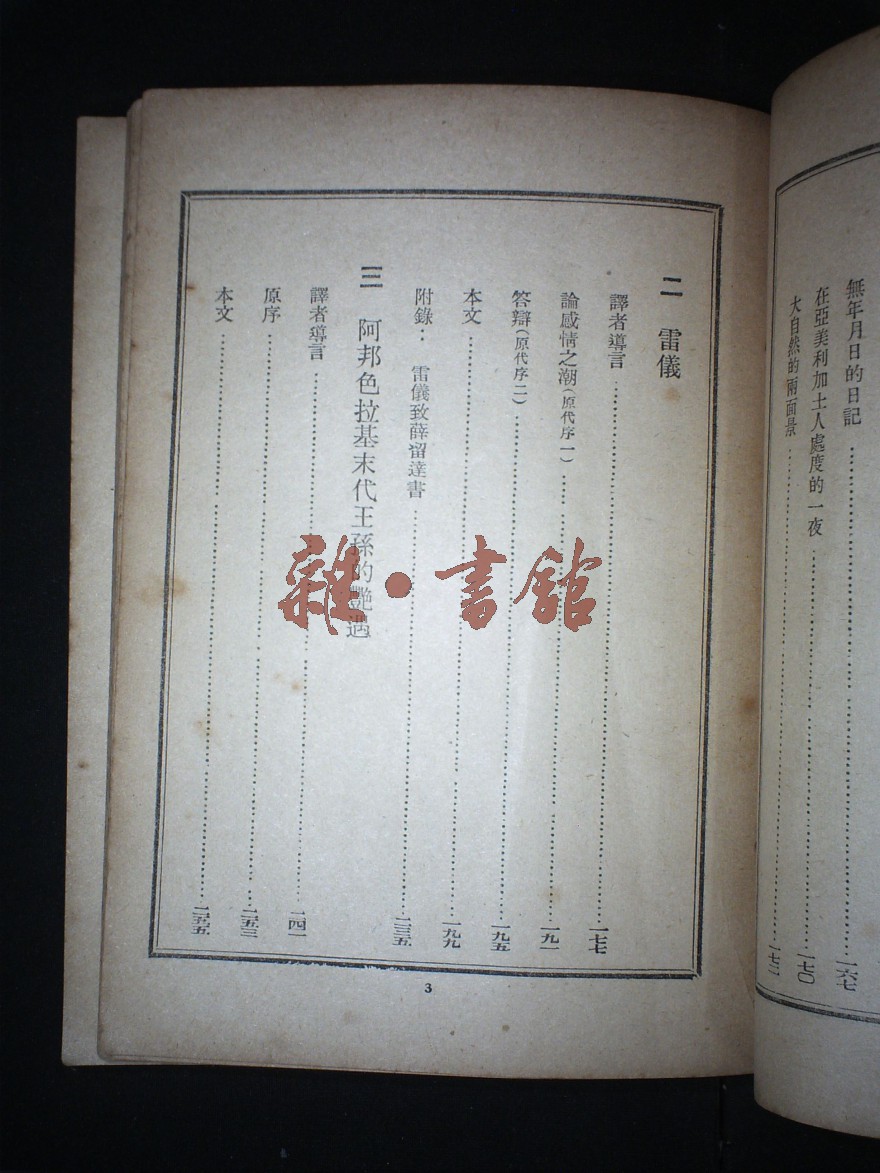 無年月日的日記 一六七
在亞美利加土人處度的一夜 一七〇
大自然的兩面景 一七二
二 雷儀
譯者導言 一七七
論感情之潮(原代序一) 一九一
答辯(原代序二) 一九五
本文 一九九
附錄：雷儀致薛留達書 二三五
三 阿邦色拉基末代王孫的艷遇
譯者導言 二四一
原序 二五三
本文 二五五
3
雜·書館